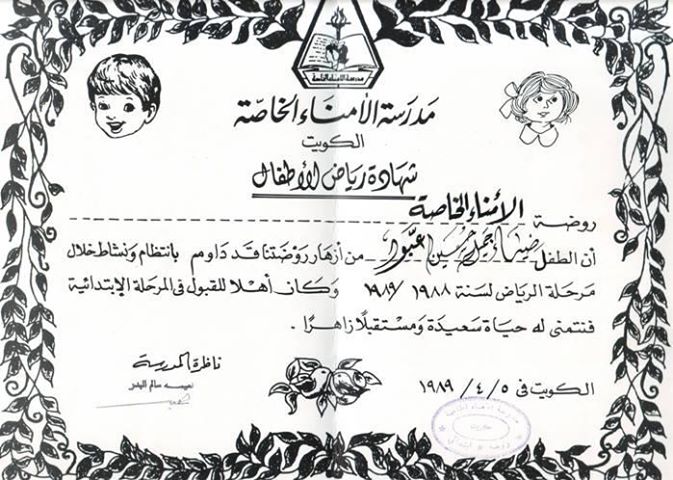 مدرسة الأمناء الخاصة
مدرسة الأمناء الخاصّة
الكويت
شهادة رياض الأطفال
روضة الأمناء الخاصة
أن الطفل ضياء جميل حسين عبود من أزهار روضتنا قد داوم بانتظام ونشاط خلال
مرحلة الرياض لسنة ١٩٨٨ / ١٩٨٩ وكان أهلا للقبول في المرحلة الإبتدائية
فنتمنى له حياة سعيدة ومستقبلًا زاهرًا .
ناظرة المدرسة
سالم
الكويت في ٥ / ٤ / ١٩٨٩